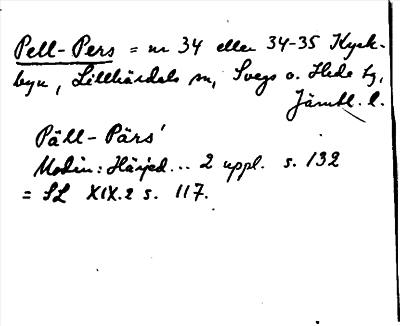 Pell-Pers = nr 34 eller 34-35 Kyrk-
byn, Lillhärdals sn, Svegs o. Hede tg,
Jämtl. l.
Päll-Pärs'
Modin: Härjed... 2 uppl. s. 132
= SL XIX.2 s. 117.